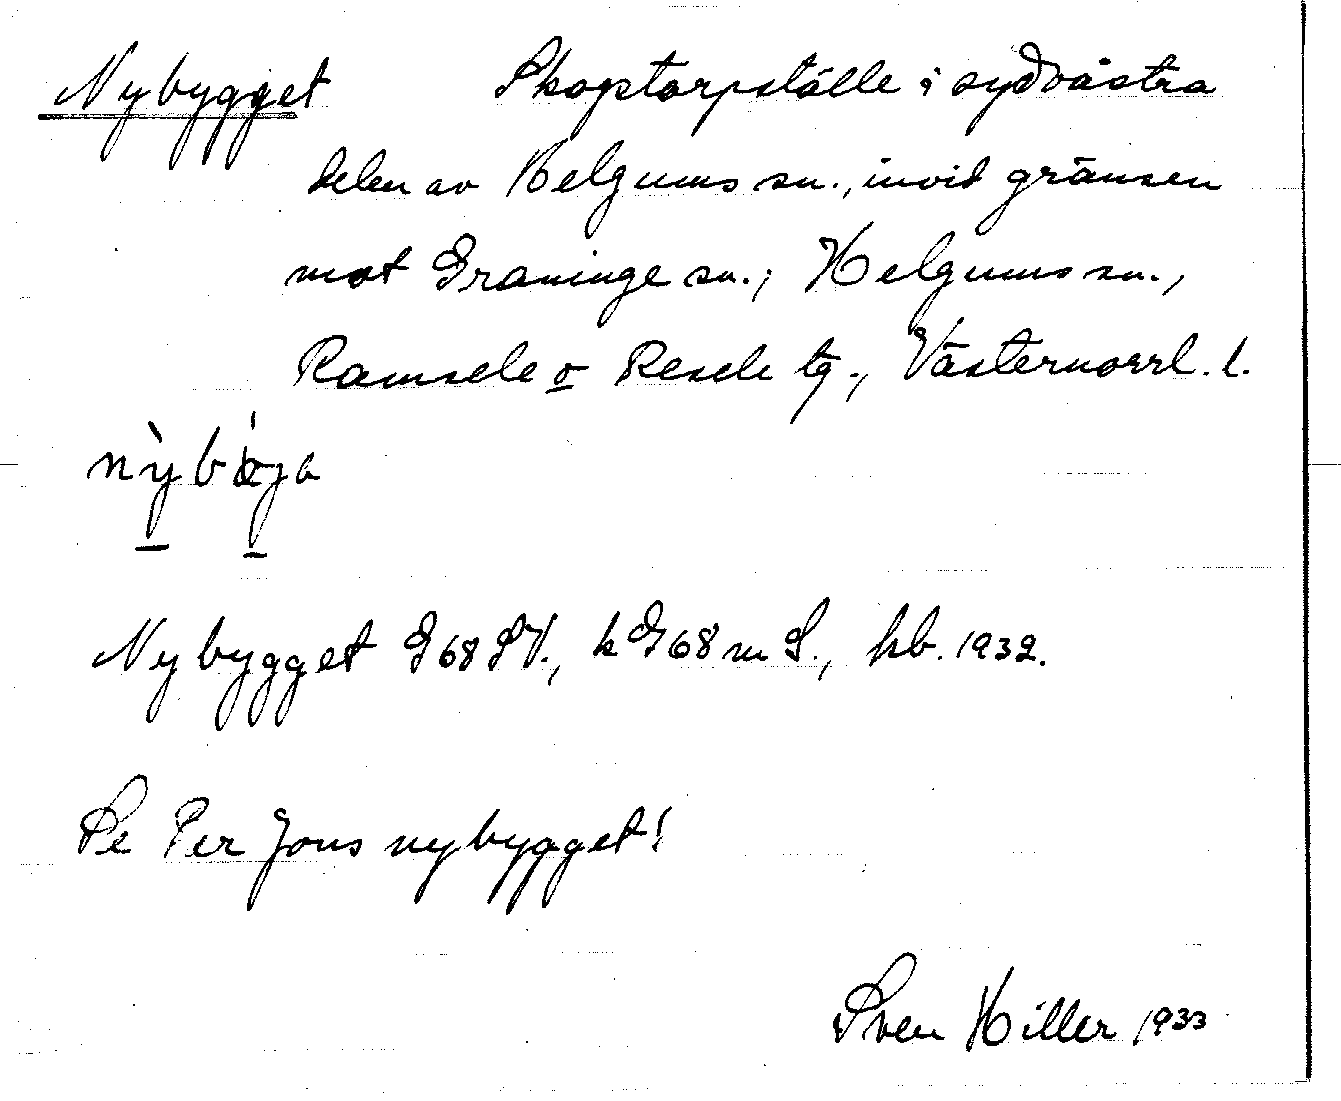 Nybygget Skogstorpställe i sydvästra
delen av Helgums sn., invid gränsen
mot Graninge sn.; Helgums sn.,
Ramsele o Resele tg., Västernorrl. l.
Nybygget G68SV., k G68 m S., hb. 1932.
Se Per Jons nybygget!
Sven Hiller 1933